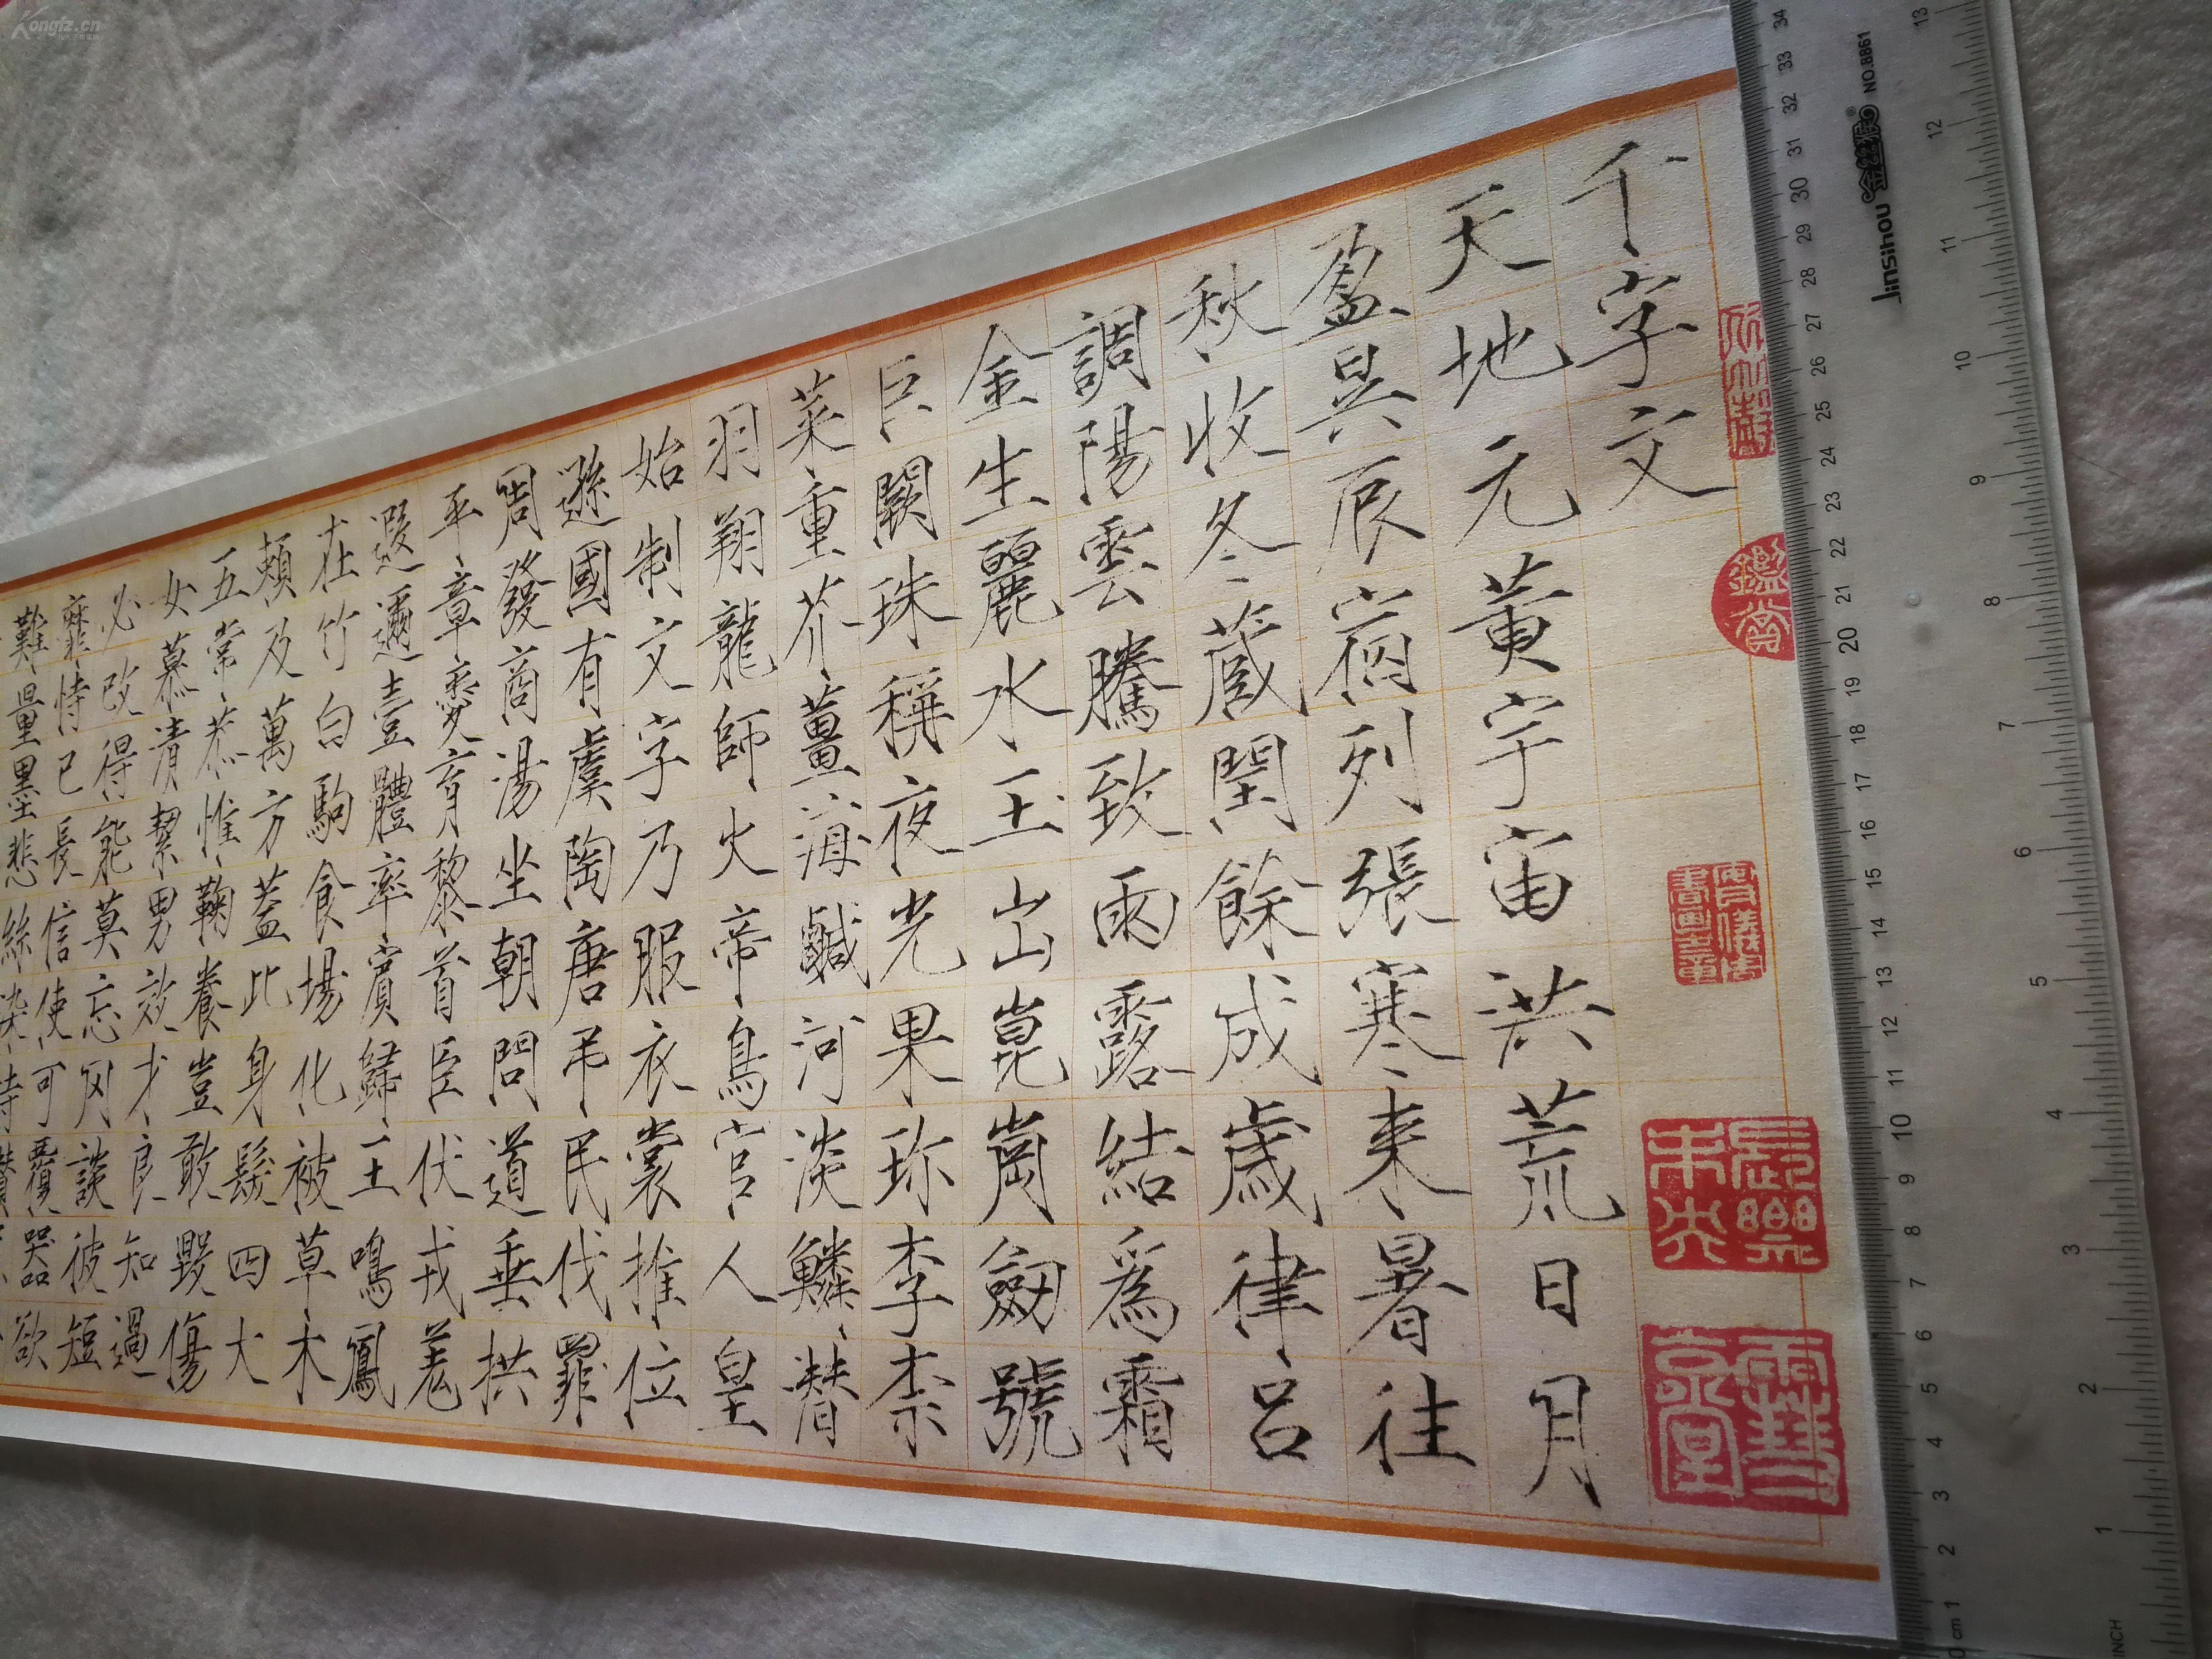 千字文
天地元黄宇宙洪荒日月
盈昃辰宿列張寒来暑往
秋收冬蔵閏餘成歳律吕
調陽雲騰致雨露結爲霜
金生麗水玉出崑崗劔號
巨闕珠稱夜光果珎李柰
菜重芥薑海鹹河淡鱗潜
羽翔龍師火帝鳥官人皇
始制文字乃服衣裳推位
遜國有虞陶唐吊民伐罪
周發商湯坐朝問道垂拱
平章愛育黎首臣伏戎羌
遐邇壹體率賓歸王鳴鳳
在竹白駒食場化被草木
頼及萬方蓋此身髮四大
五常恭惟鞠養豈敢毀傷
女慕清絜男效才良知過
必改得能莫忘罔談彼短
靡恃己長信使可覆器欲
難量墨悲絲染詩讚
鑑賞
長樂未央
Jinsihou 金丝猴® NO.8861
0 cm 1 2 3 4 5 6 7 8 9 10 11 12 13 14 15 16 17 18 19 20 21 22 23 24 25 26 27 28 29 30 31 32 33 34
INCH 1 2 3 4 5 6 7 8 9 10 11 12 13
Kongfz.cn